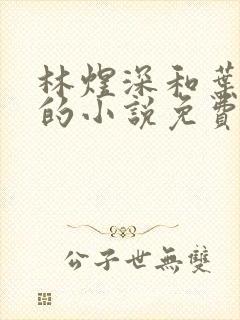 林煋深和葉
的小說免費
公子世無雙